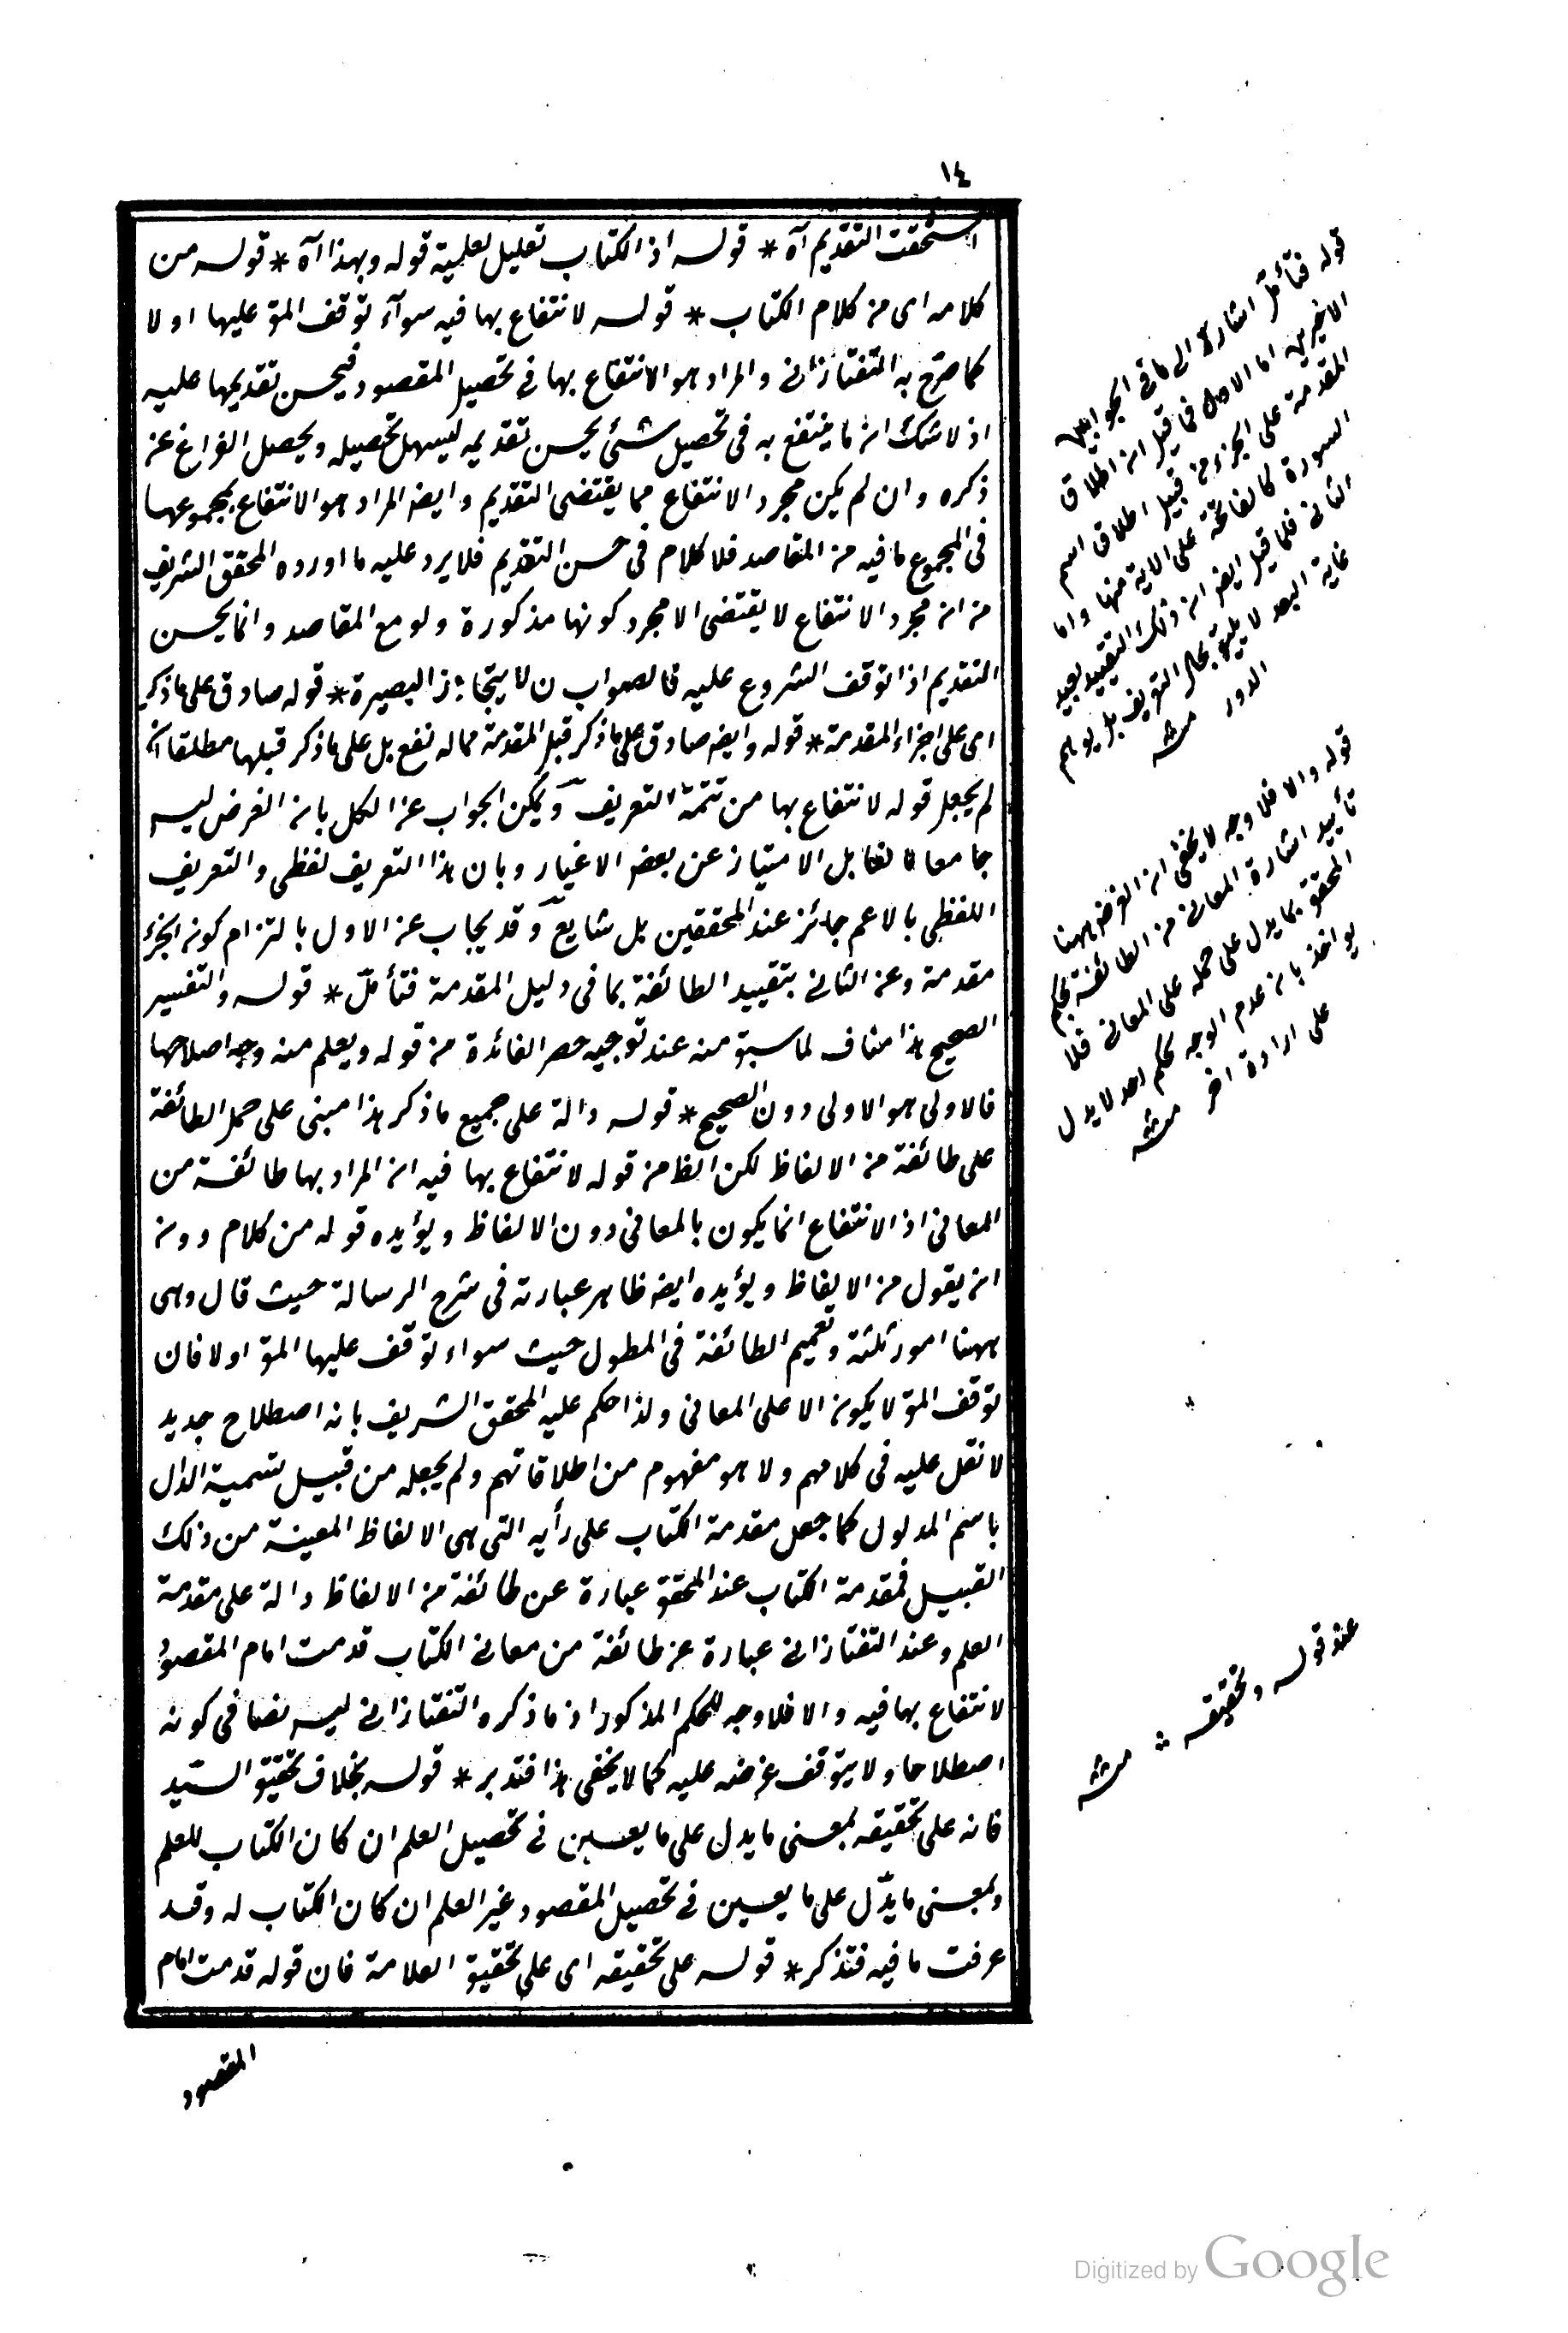 ١٤
استحقت التقديم آه * قوله اذ الكتاب تعليل لعلمية قوله وبهذا آه * قوله من
كلامه اى من كلام الكتاب * قوله لانتفاع بها فيه سوآء توقف المق عليها او لا
كما صرّح به التفتازانى والمراد هو الانتفاع بها فى تحصيل المقصود فيحسن تقديمها عليه
اذ لا شك ان ما ينتفع به فى تحصيل شئ يحسن تقديمه ليسهل تحصيله ويحصل الفراغ عن
ذكره وان لم يكن مجرد الانتفاع مما يقتضى التقديم وايضا المراد هو الانتفاع بمجموعها
فى المجموع ما فيه من المقاصد فلا كلام فى حسن التقديم فلا يرد عليه ما اورده المحقق الشريف
من ان مجرد الانتفاع لا يقتضى الا مجرد كونها مذكورة ولو مع المقاصد وانما يحسن
التقديم اذا توقف الشروع عليه فالصواب ن لا يتجا البصيرة * قوله صادق على ما ذكر
اى على اجزاء المقدمة * قوله وايضه صادق على ما ذكر قبل المقدمة مما له نفع بل على ما ذكر قبلها مطلقا ان
لم يجعل قوله لانتفاع بها من تتمّة التعريف ويمكن الجواب عن الكل بان الغرض ليس
جامعا لنفا بل الامتياز عن بعض الاغيار وبان هذا التعريف لفظى والتعريف
اللفظى بالاعم جائز عند المحققين بل شايع وقد يجاب عن الاول بالتزام كون الجزء
مقدمة وعن الثانى بتقييد الطائفة بما فى دليل المقدمة فتأمل * قوله والتفسير
الصحيح هذا مناف لما سبق منه عند توجيه حصر الفائدة من قوله ويعلم منه وجه اصلاحها
فالاولى هو الاولى دون الصحيح * قوله دالة على جميع ما ذكر هذا مبنى على حمل الطائفة
على طائفة من الالفاظ لكن الظ من قوله لانتفاع بها فيه ان المراد بها طائفة من
المعانى اذ الانتفاع انما يكون بالمعانى دون الالفاظ ويؤيده قوله من كلام دون
ان يقول من الالفاظ ويؤيده ايضه ظاهر عبارته فى شرح الرسالة حيث قال وهى
ههنا امور ثلثة وتعميم الطائفة فى المطول حيث سواء توقف عليها المق اولا فان
توقف المق لا يكون الا على المعانى ولذا حكم عليه المحقق الشريف بانه اصطلاح جديد
لا نقل عليه فى كلامهم ولا هو مفهوم من اطلاقاتهم ولم يجعله من قبيل تسمية الدال
باسم المدلول كما جعل مقدمة الكتاب على رأيه التى هى الالفاظ المعينة من ذلك
القبيل فمقدمة الكتاب عند المحقق عبارة عن طائفة من الالفاظ دالة على مقدمة
العلم وعند التفتازانى عبارة عن طائفة من معانى الكتاب قدمت امام المقصود
لانتفاع بها فيه والا فلا وجه للحكم المذكور اذ ما ذكره التفتازانى ليس نصا فى كونه
اصطلاحا ولا يتوقف غرضه عليه كما لا يخفى هذا فتدبر * قوله بخلاف تحقيق السيّد
فانه على تحقيقه بمعنى ما يدل على ما يعين فى تحصيل العلم ان كان الكتاب للعلم
وبمعنى ما يدّل على ما يعين فى تحصيل المقصود غير العلم ان كان الكتاب له وقد
عرفت ما فيه فتذكر * قوله على تحقيقه اى على تحقيق العلامة فان قوله قدمت امام
المقصود
قوله فتأمل اشارة الى ما فى الجوابين
الاخيرين اما الاول فما قيل ان اطلاق
المقدمة على الجزء من قبيل اطلاق اسم
السورة كالفاتحة على الاية منها واما
الثانى فلما قيل ايضه ان ذلك التقييد بعيد
غاية البعد لا يليق بحال التعريف بل يوهم
الدور منه
قوله والا فلا وجه لا يخفى ان الغرض ههنا
تأييد اشارة المعانى من الطائفة بحكم
المحقق بما يدل على حمله على المعانى فلا
يواخذ بان عدم الوجه لحكم احد لا يدل
على ارادة اخر منه
عند قوله وتحقيقه منه
Digitized by Google